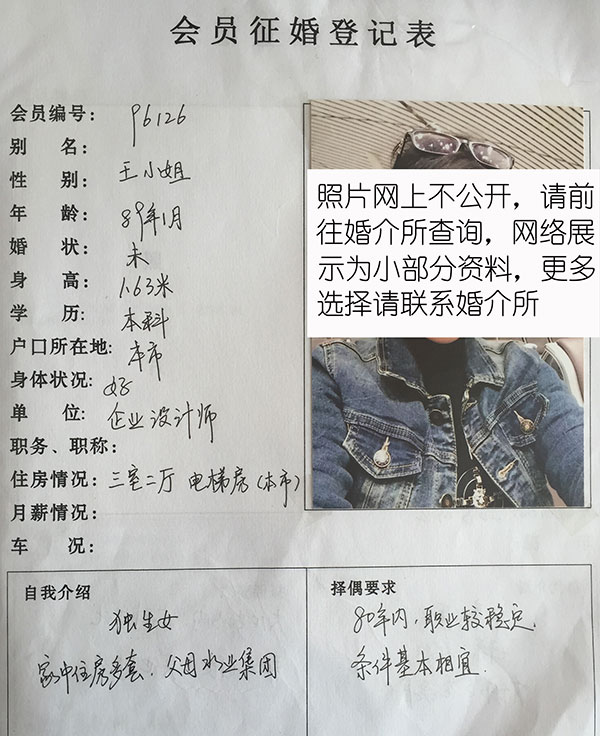 会员征婚登记表
会员编号: 96126
别 名:
性 别: 王小姐
年 龄: 89年1月
婚 状: 未
身 高: 1.63米
学 历: 本科
户口所在地: 本市
身体状况: 好
单 位: 企业设计师
职务、职称:
住房情况: 三室二厅 电梯房(本市)
月薪情况:
车 况:
照片网上不公开，请前
往婚介所查询，网络展
示为小部分资料，更多
选择请联系婚介所
自我介绍
独生女
家中住房多套. 父母水业集团
择偶要求
80年内, 职业较稳定.
条件基本相宜.